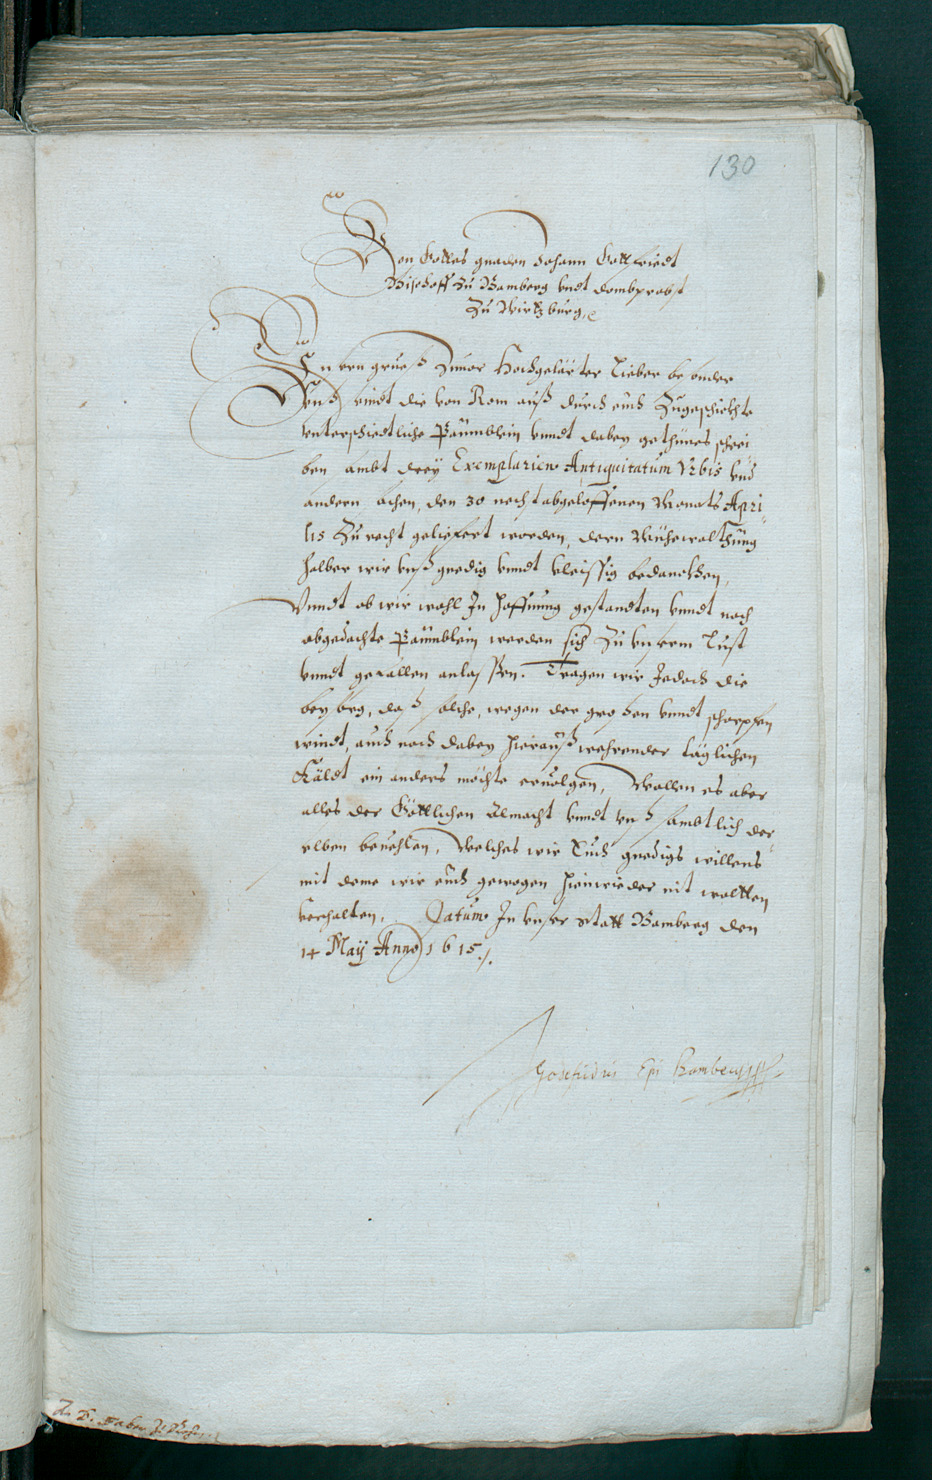 130
Von Gottes gnaden Johann Gottfriedt
Bischoff Zu Bamberg vndt dombprobst
Zu Wirtzburg,
Vnsern grueß Zuuor Hochgelärter Lieber besonder
Vnß sindt die von Rom auß durch euch Zugeschickhte
vnterschiedtliche Paümblein vnndt dabey gethünes schrei
ben sambt dreÿ Exemplarien Antiquitatum Vrbis vnd
andern sachen, den 30 nechst abgeloffenen Monats Apri=
lis Zu recht geliefert worden, dern Mühewalthung
halber wir vnß gnedig vnndt vleissig bedanckhen,
Vnndt ob wir wohl In hoffnung gestandten vnndt noch
abgedachte Paümblein werden sich Zu vnserm Lust
vnndt gefallen anlassen. Tragen wir Jedoch die
beysorg, daß solche, wegen der grossen vnndt scharpfen
windt, auch noch dabey hierauß wehrender täglichen
Käldt ein anders möchte eruolgen, Wollen es aber
alles der Göttlichen Almacht vnndt vnß sambtlich der=
selben beuehlen, Welches wir Euch gnedigs willens
mit deme wir euch gewogen hinwieder nit woltten
verhalten. Datum In vnser Statt Bamberg den
14 Maÿ Anno 1615./.
Godefridus Eps Bambergs